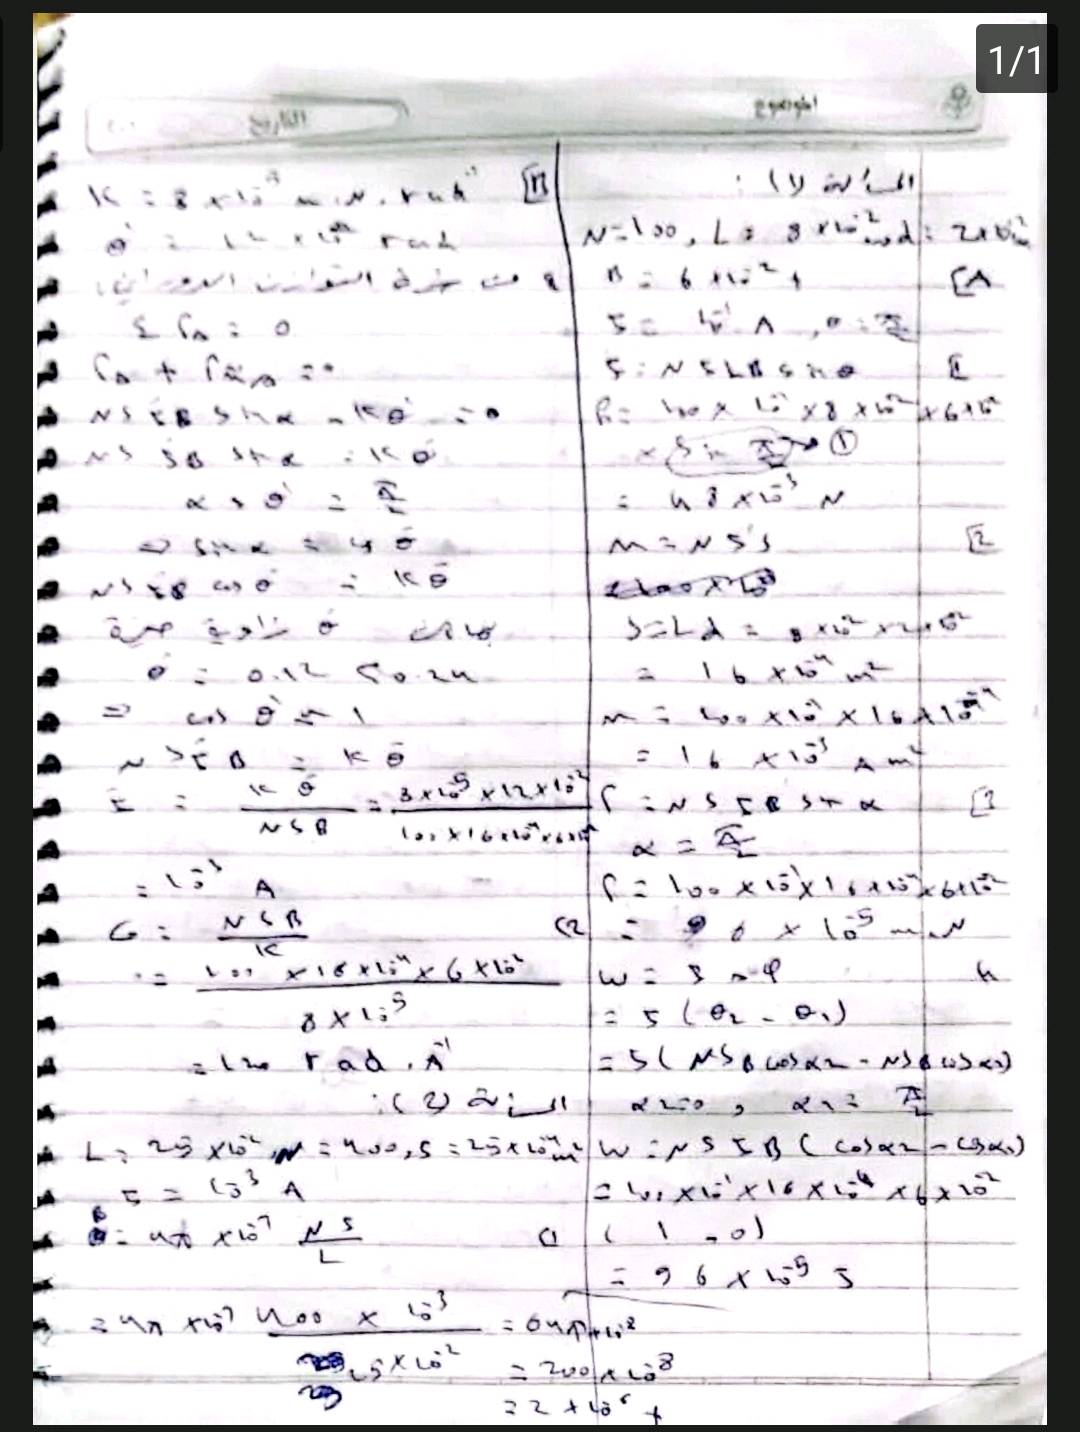 1/1
الموضوع
التاريخ
المسألة (1) :
N = 100 , L = 8 × 10^-2 m , d = 2 × 10^-2 m
[A
B = 6 × 10^-2 T
I = 10^-1 A , θ = π/2
[1
F = N I L B sin θ
F = 100 × 10^-1 × 8 × 10^-2 × 6 × 10^-2
× sin π/2 → ①
= 48 × 10^-3 N
[2
m = N I s
s = L d = 8 × 10^-2 × 2 × 10^-2
= 16 × 10^-4 m^2
m = 100 × 10^-1 × 16 × 10^-4
= 16 × 10^-3 A m^2
[3
Γ = N S I B sin α
α = π/2
Γ = 100 × 10^-1 × 16 × 10^-4 × 6 × 10^-2
= 96 × 10^-5 m.N
W = I Δφ
= I (θ2 - θ1)
= I ( NSB cos α2 - NSB cos α1)
α2 = 0 , α1 = π/2
W = N S I B ( cos α2 - cos α1)
= 100 × 10^-1 × 16 × 10^-4 × 6 × 10^-2
( 1 - 0)
= 96 × 10^-5 J
[B
K = 8 × 10^-5 m.N.rad^-1
θ' = 12 × 10^-2 rad
من شرط التوازن الدوراني
Σ Γ_Δ = 0
NSIB sin α - Kθ' = 0
NS IB sin α = Kθ'
α + θ' = π/2
⇒ sin α = cos θ'
NSIB cos θ' = Kθ'
θ' زاوية صغيرة
θ' = 0.12 < 0.24
⇒ cos θ' ≈ 1
N S I B = K θ'
I = K θ' / NSB = 8 × 10^-5 × 12 × 10^-2 / 100 × 16 × 10^-4 × 6 × 10^-2
= 10^-3 A
(2
G = NSB / K
= 100 × 16 × 10^-4 × 6 × 10^-2 / 8 × 10^-5
= 120 rad . A^-1
المسألة (2) :
L = 25 × 10^-2 , N = 400 , S = 25 × 10^-4 m^2
I = 10^-3 A
B = 4π × 10^-7 N I / L
= 4π × 10^-7 400 × 10^-3 / 25 × 10^-2 = 64π × 10^-8
= 200 × 10^-8
= 2 × 10^-6 T